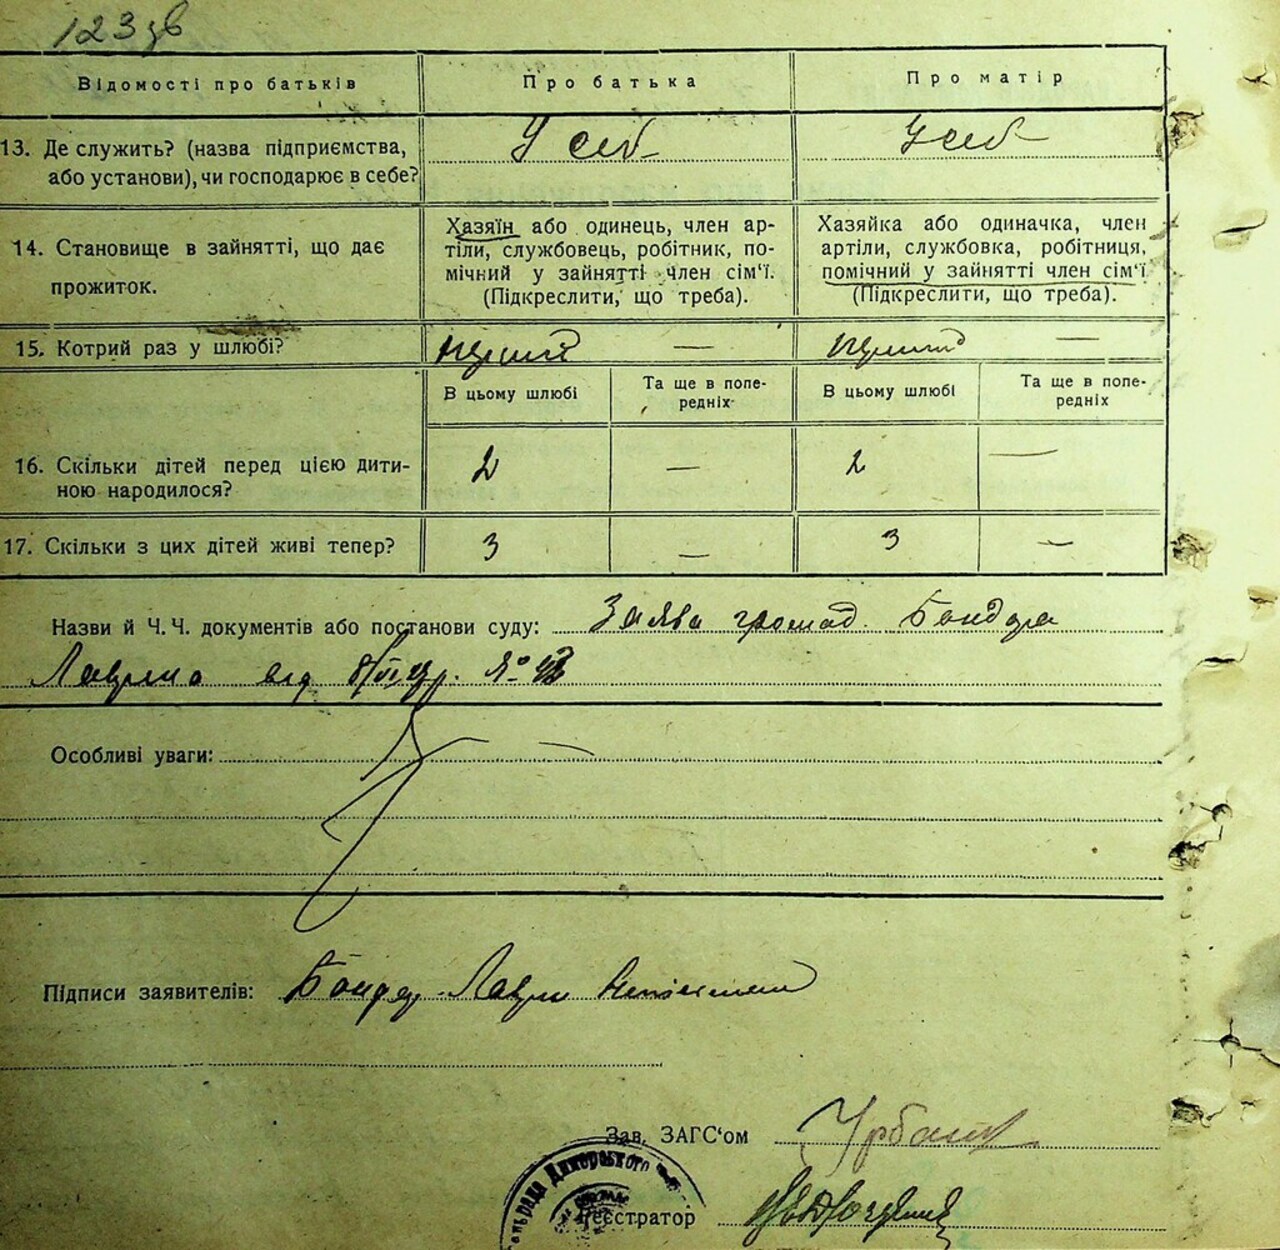 123 зв
Відомості про батьків Про батька Про матір
13. Де служить? (назва підприємства, У себ У себ
або установи), чи господарює в себе?
14. Становище в зайнятті, що дає
прожиток.
Хазяїн або одинець, член ар-
тіли, службовець, робітник, по-
мічний у зайнятті член сім'ї.
(Підкреслити, що треба).
Хазяйка або одиначка, член
артіли, службовка, робітниця,
помічний у зайнятті член сім'ї
(Підкреслити, що треба).
15. Котрий раз у шлюбі? перший — перший —
В цьому шлюбі Та ще в попе-
редніх
В цьому шлюбі Та ще в попе-
редніх
16. Скільки дітей перед цією дити- 2 — 2 —
ною народилося?
17. Скільки з цих дітей живі тепер? 3 — 3 —
Назви й Ч.Ч. документів або постанови суду: Заява громад. Бондаря
Лаврина від 8/VI
Особливі уваги:
Підписи заявителів: Бондар Лаврін
Зав. ЗАГС'ом Урбан
Реєстратор